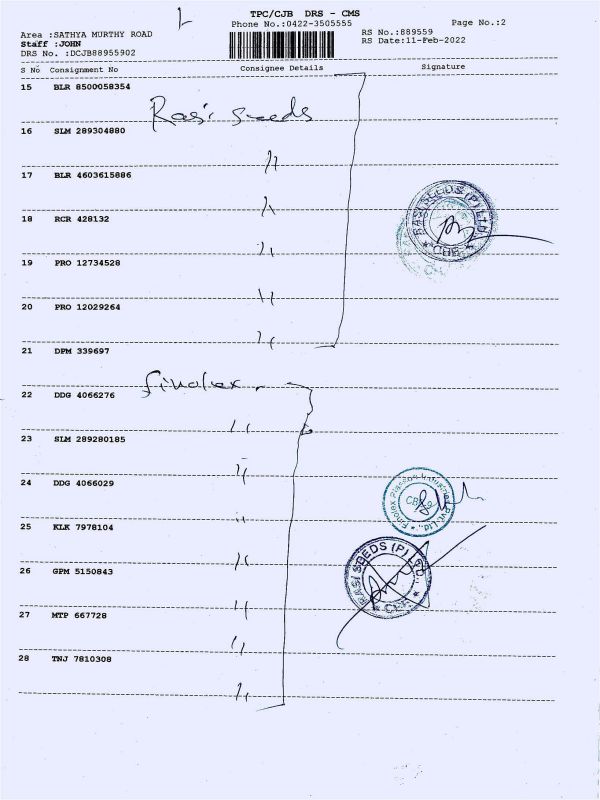 TPC/CJB DRS - CMS
Phone No.:0422-3505555
Page No.:2
Area :SATHYA MURTHY ROAD
RS No.:889559
Staff :JOHN
RS Date:11-Feb-2022
DRS No. :DCJB88955902
S No Consignment No Consignee Details Signature
15 BLR 8500058354
Rasi seeds
16 SLM 289304880
17 BLR 4603615886
18 RCR 428132
RASI SEEDS (P) LTD.
* CBE *
19 PRO 12734528
20 PRO 12029264
21 DPM 339697
finolex.
22 DDG 4066276
23 SLM 289280185
24 DDG 4066029
25 KLK 7978104
26 GPM 5150843
RASI SEEDS (P) LTD.
27 MTP 667728
28 TNJ 7810308